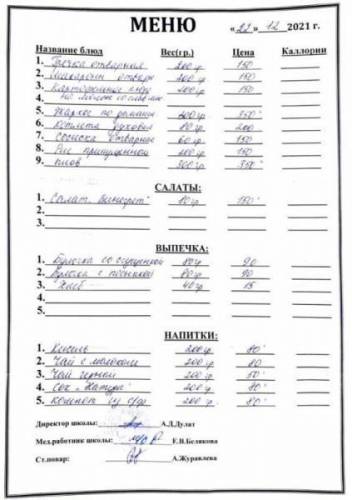 МЕНЮ «22» 12 2021 г.
Название блюд Вес(гр.) Цена Каллории
1. Гречка отварная 200 гр 150
2. Макароны отварные 200 гр 150
3. Картофельное пюре 200 гр 150
4. на молоке со слив. маслом
5. Жаркое по домашнему 300 гр 350
6. Котлета 80 гр 200
7. Сосиска отварная 60 гр 150
8. Рис припущенный 200 гр 150
9. плов 300 гр 350
САЛАТЫ:
1. Салат "Винегрет" гр 150
2.
3.
ВЫПЕЧКА:
1. Булочка со сгущенкой 80 гр 90
2. Булочка с посыпкой 80 гр 90
3. Хлеб 40 гр 15
4.
5.
НАПИТКИ:
1. Кисель 200 гр 80
2. Чай с молоком 200 гр 80
3. Чай черный 200 гр
4. Сок 200 гр 80
5. Компот из с/ф 200 гр 80
Директор школы: А.Д.Дулат
Мед.работник школы: Е.В.Белякова
Ст.повар: А.Журавлева